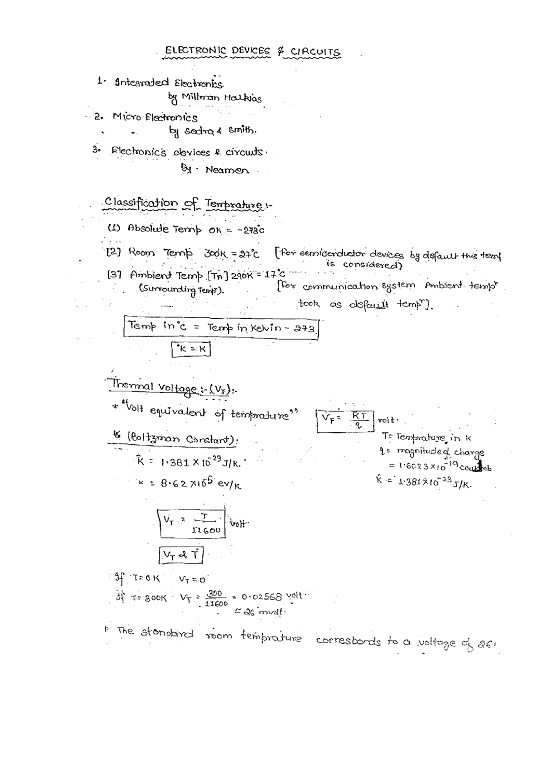 ELECTRONIC DEVICES & CIRCUITS
1. Integrated Electronics
by Millman Halkias
2. Micro Electronics
by Sedra & Smith.
3. Electronics devices & circuits.
By. Neamen
Classification of Temprature:-
(1) Absolute Temp 0K = -273°C
[2] Room Temp 300K = 27°C [For semiconductor devices by default this temp
is considered)
[3] Ambient Temp. [Tn] 290K = 17°C
(Surrounding Temp). [For communication system Ambient temp
took as default temp].
Temp in °C = Temp in Kelvin - 273.
°K = K
Thermal Voltage :- (VT):-
* "Volt equivalent of temprature" VT = KT/q volt.
K (Boltzman Constant): T = Temprature in K
q = magnitude of charge
K = 1.381 × 10^-23 J/K. = 1.6023 × 10^-19 Coulomb
K = 8.62 × 10^5 ev/K K = 1.381 × 10^-23 J/K.
VT = T/11600 volt.
VT α T
If T = 0K VT = 0
If T = 300K VT = 300/11600 = 0.02568 volt.
= 26 mvolt.
The standard room temprature corresbords to a voltage of 26